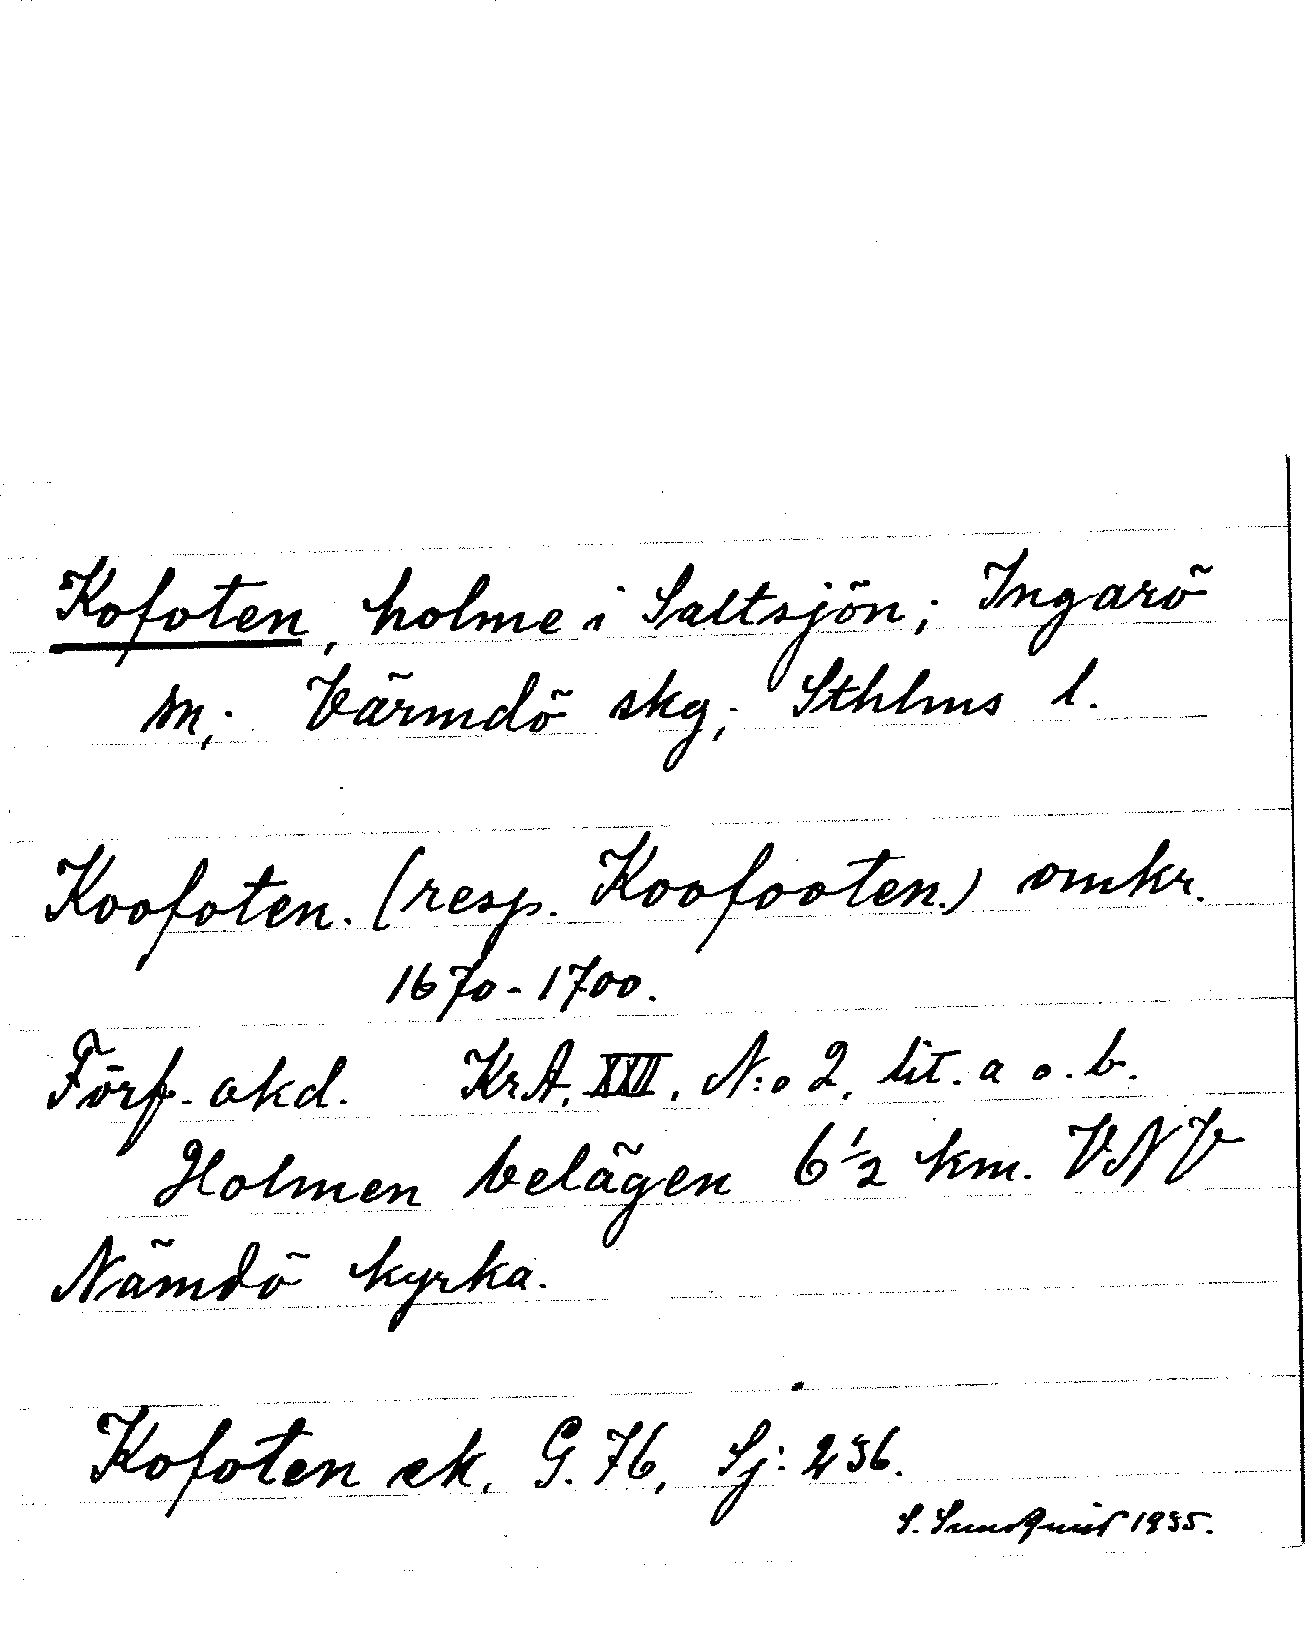 Kofoten, holme i Saltsjön; Ingarö
sn; Värmdö skg; Sthlms l.
Koofoten. (resp. Koofooten.) omkr.
1670-1700.
Förf. okd. KrA. XXII. N:o 2, lit. a o. b.
Holmen belägen 6 1/2 km. VNV
Nämdö kyrka.
Kofoten ek. G. 76, Sj: 236.
S. Sundquist 1935.